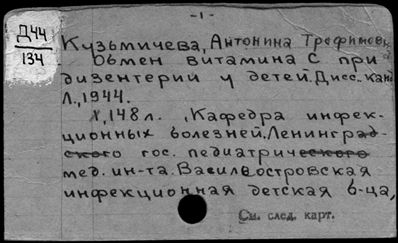 -1-
Д44
134
Кузьмичева, Антонина Трофимовна
Обмен витамина С при
дизентерии у детей. Дисс. канд
Л., 1944.
X, 148 л. (Кафедра инфек-
ционных болезней Ленинград-
ского гос. педиатрического
мед. ин-та. Василеостровская
инфекционная детская б-ца,
См. след. карт.